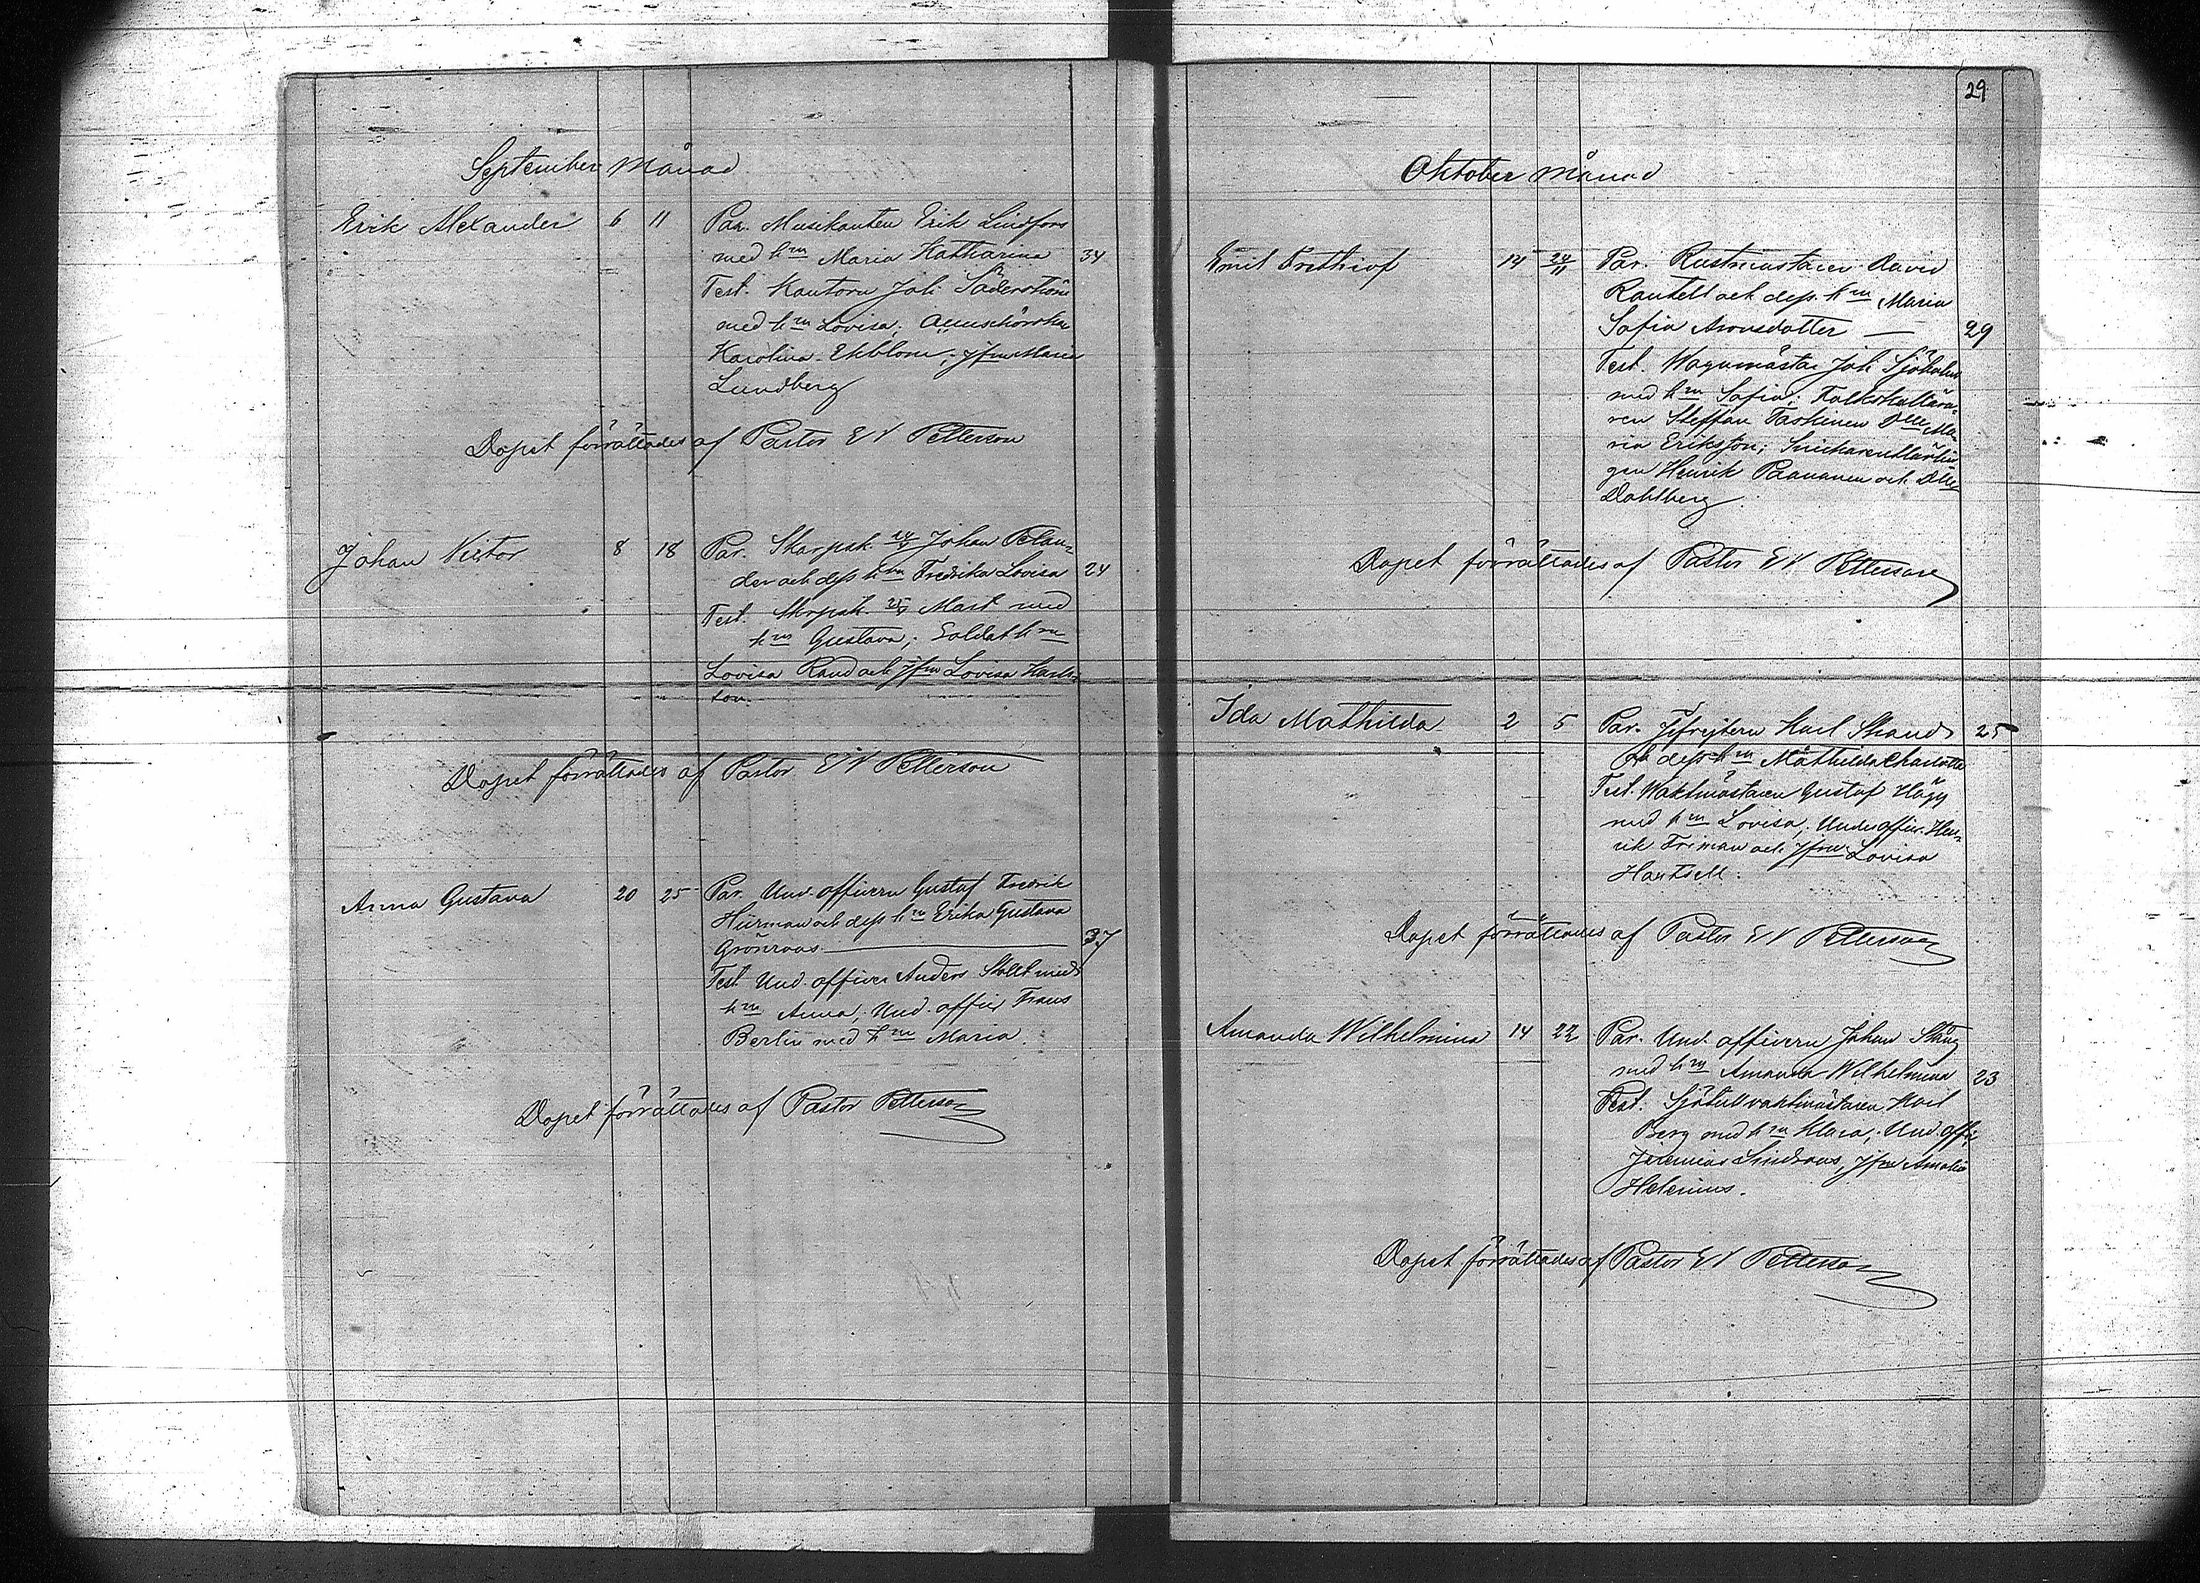 September månad
Erik Alexander 6 11 Par. Musikanten Erik Lindfors
med h:ru Maria Katharina 34
Test. Kantorn Joh. Söderström
med h:ru Lovisa;
Karolina Ekblom; Jfru Maria
Lundberg
Dopet förrättades af Pastor E V Petterson
Johan Victor 8 18 Par. Skarpsk. Johan Pelan-
der och dess h:ru Fredrika Lovisa 24
Test. Skrpsk. Mart med
h:ru Gustava; Soldat h:ru
Lovisa Rand och Jfru Lovisa
Dopet förrättades af Pastor E V Petterson
Anna Gustava 20 25 Par. Und. officern Gustaf Fredrik
Hürman och dess h:ru Erika Gustava
Grönroos 37
Test. Und. officer Anders Stolt med
h:ru Anna; Und. officer Frans
Berlin med h:ru Maria.
Dopet förrättades af Pastor Petterson
29
Oktober månad
Emil Frithiof 14 24/11 Par. Rustmästaren David
Rantell och dess h:ru Maria
Sofia Aronsdotter 29
Test. Wagnmästar Joh Sjöholm
med h:ru Sofia; Folkskollära-
ren Steffan Taskinen Dlle Ma-
ria Eriksson; Snickarenlärlin-
gen Henrik Paananen och Dlle
Dahlberg
Dopet förrättades af Pastor E V Petterson
Ida Mathilda 2 5 Par. Jefrejtern Karl Strand 25
och dess h:ru Mathilda Charlotta
Test. Waktmästaren Gustaf Hägg
med h:ru Lovisa; Underofficer Hen-
rik Friman och Jfru Lovisa
Hartsell.
Dopet förrättades af Pastor E V Petterson
Amanda Wilhelmina 14 22 Par. Und. officern Johan Stång
med h:ru Amanda Wilhelmina 23
Test. Sjötullvaktmästaren Karl
Berg med h:ru Klara; Und. offic
Jeremias Lindroos, Jfru Amalia
Helenius.
Dopet förrättades af Pastor E V Petterson